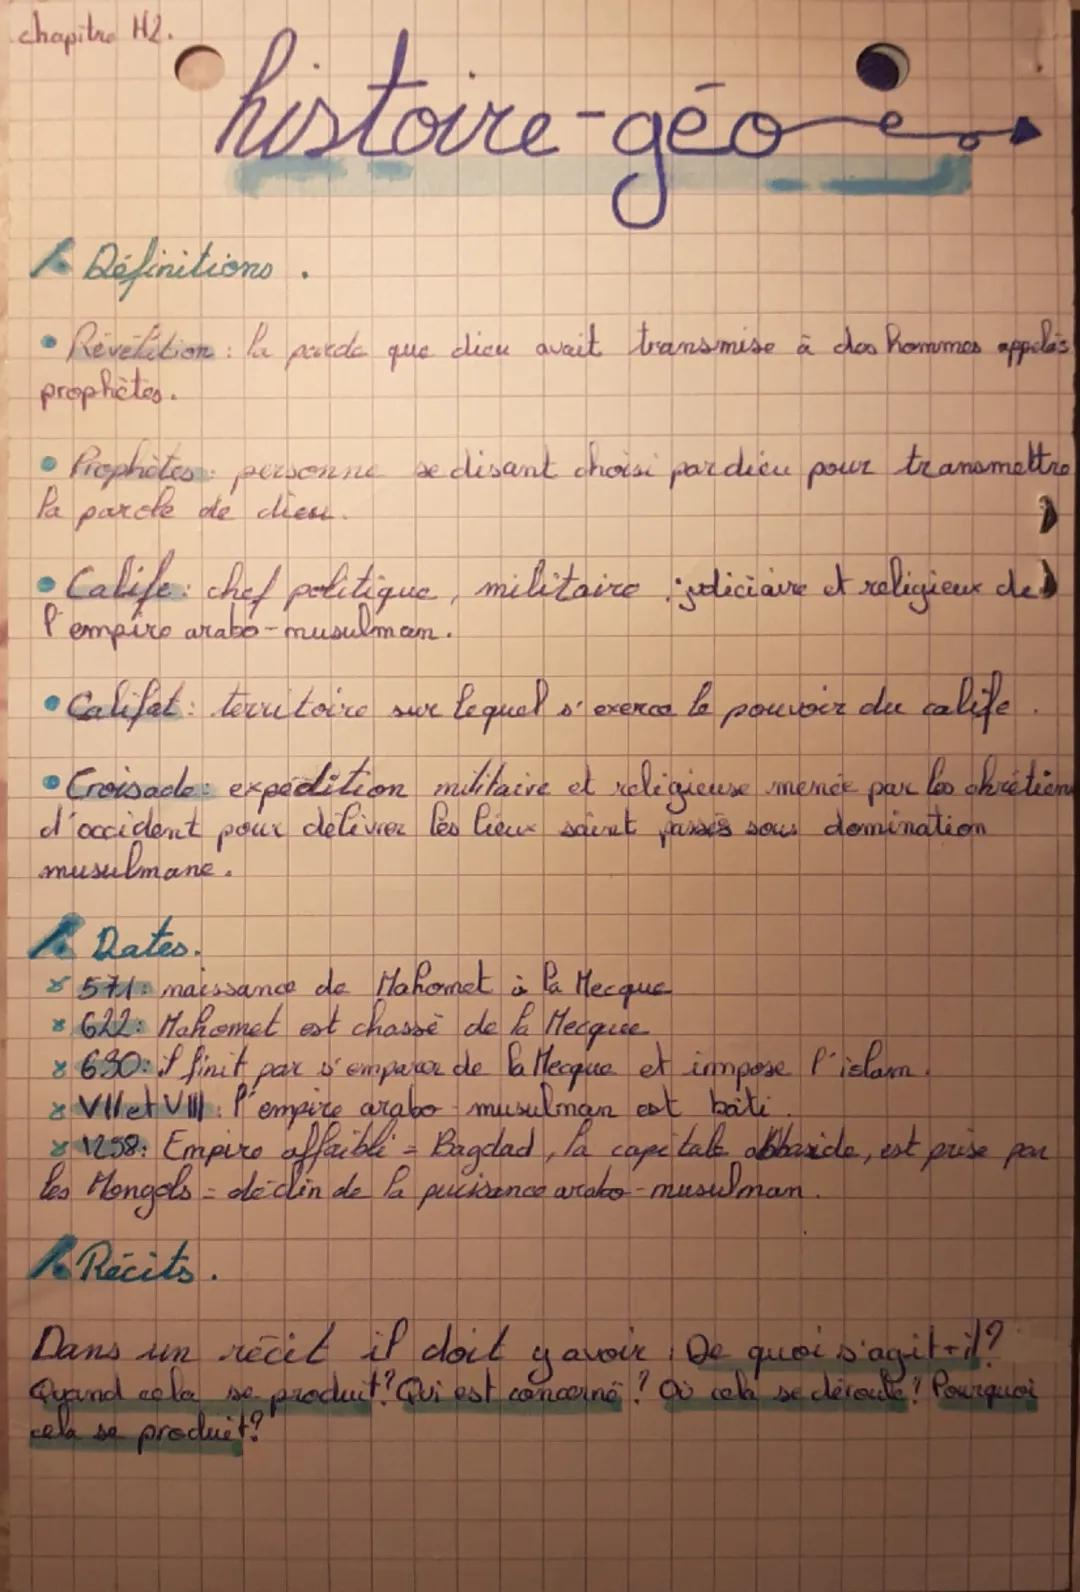 chapitre H2.
histoire-géo
Définitions.
• Révélation : la parole que dieu avait transmise à des hommes appelés
prophètes.
• Prophètes : personne se disant choisi par dieu pour transmettre
la parole de dieu.
• Calife : chef politique, militaire, judiciaire et religieux de
l'empire arabo-musulman.
• Califat : territoire sur lequel s'exerce le pouvoir du calife.
• Croisade : expédition militaire et religieuse menée par les chrétiens
d'occident pour délivrer les lieux saint passés sous domination
musulmane.
Dates.
571 : naissance de Mahomet à la Mecque
622 : Mahomet est chassé de la Mecque
630 : il finit par s'emparer de la Mecque et impose l'islam.
VII et VIII : l'empire arabo-musulman est bâti.
1258 : Empire affaibli = Bagdad, la capitale abbaside, est prise par
les Mongols = déclin de la puissance arabo-musulman.
Récits.
Dans un récit il doit y avoir : De quoi s'agit-il ?
Quand cela se produit ? Qui est concerné ? Où cela se déroule ? Pourquoi
cela se produit ?